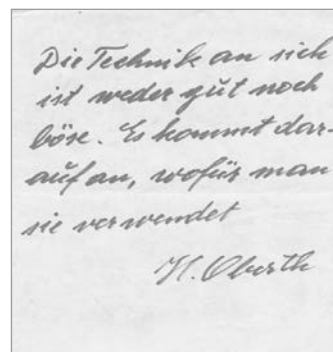 Die Technik an sich
ist weder gut noch
böse. Es kommt dar-
auf an, wofür man
sie verwendet
H. Oberth